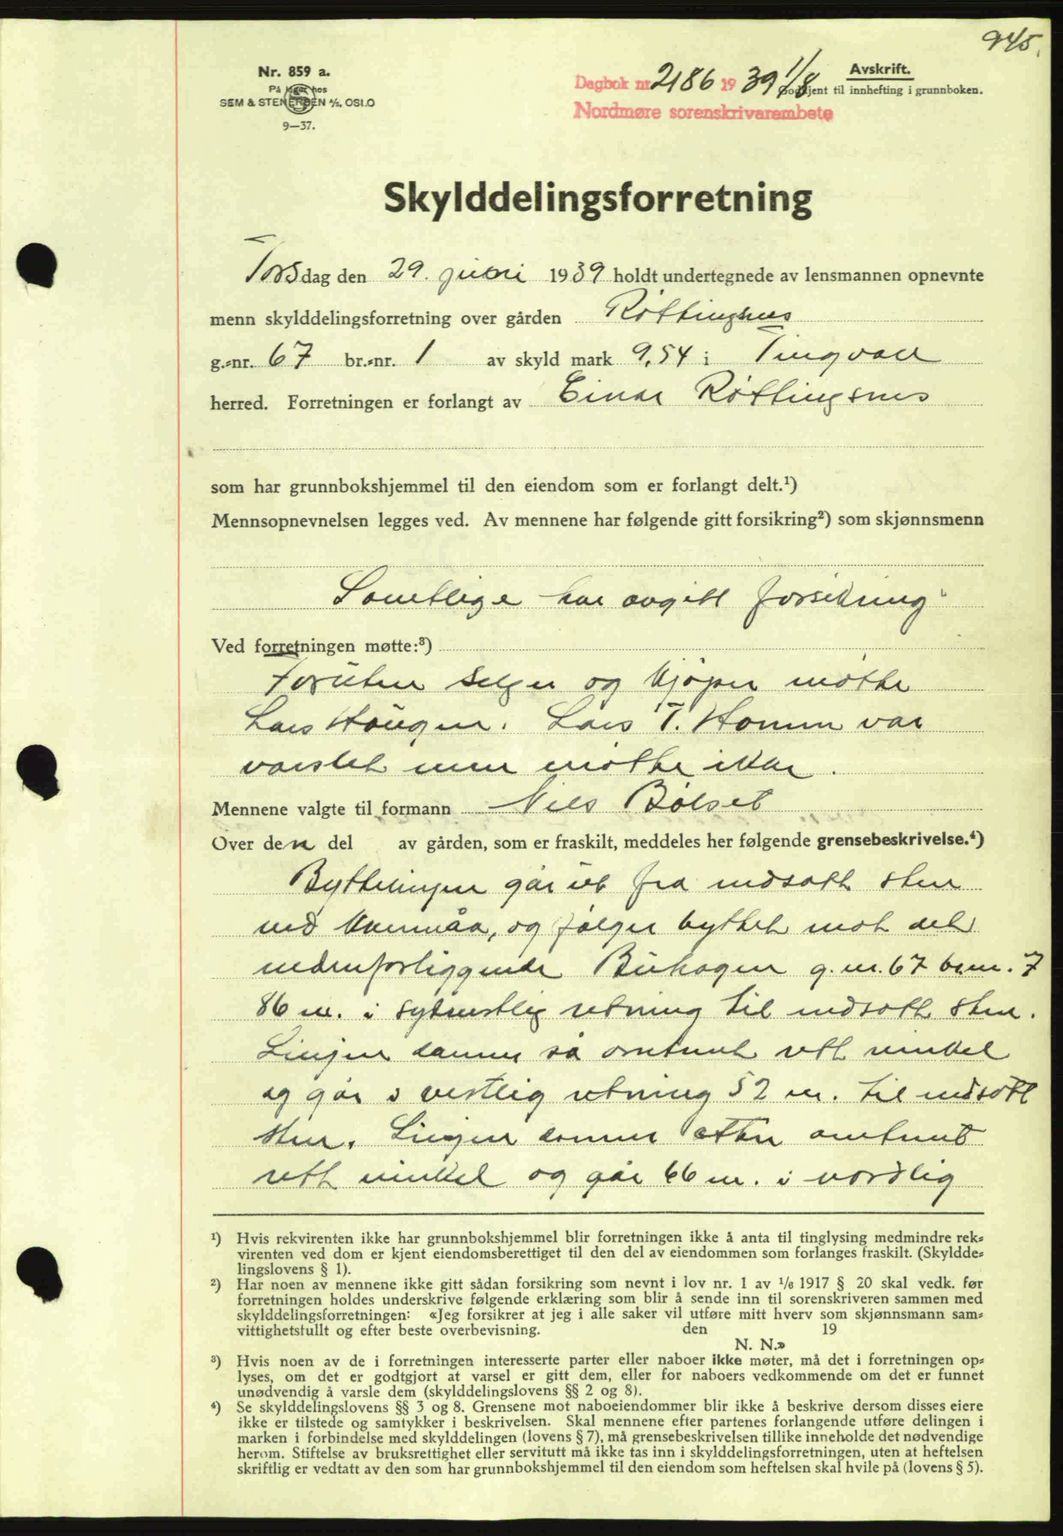 945.
Nr. 859 a.
På lager hos
SEM & STENERSEN A/S, OSLO
9—37.
Dagbok nr. 2186 1939 1/8
Nordmøre sorenskrivarembete
Avskrift.
Godkjent til innhefting i grunnboken.
Skylddelingsforretning
Torsdag den 29. juni 1939 holdt undertegnede av lensmannen opnevnte
menn skylddelingsforretning over gården Røttingsnes
g.-nr. 67 br.-nr. 1 av skyld mark 9,54 i Tingvoll
herred. Forretningen er forlangt av Einar Røttingsnes
som har grunnbokshjemmel til den eiendom som er forlangt delt.¹)
Mennsopnevnelsen legges ved. Av mennene har følgende gitt forsikring²) som skjønnsmenn
Samtlige har avgitt forsikring.
Ved forretningen møtte:³)
Foruten selger og kjøper møtte
Lars Haugen. Lars T. Homm var
varslet men møtte ikke.
Mennene valgte til formann Nils Bølset
Over den del av gården, som er fraskilt, meddeles her følgende grensebeskrivelse.⁴)
Byttelinjen går ut fra nedsatt sten
ved Kvernåa, og følger byttet mot det
nedenforliggende Buhagen g.nr. 67 br.nr. 7
86 m. i sydvestlig retning til nedsatt sten.
Linjen danner så omtrent rett vinkel
og går i vestlig retning 52 m. til nedsatt
sten. Linjen danner atter omtrent
rett vinkel og går 66 m. i nordlig
¹) Hvis rekvirenten ikke har grunnbokshjemmel blir forretningen ikke å anta til tinglysing medmindre rek-
virenten ved dom er kjent eiendomsberettiget til den del av eiendommen som forlanges fraskilt. (Skyldde-
lingslovens § 1).
²) Har noen av mennene ikke gitt sådan forsikring som nevnt i lov nr. 1 av 1/6 1917 § 20 skal vedk. før
forretningen holdes underskrive følgende erklæring som blir å sende inn til sorenskriveren sammen med
skylddelingsforretningen: «Jeg forsikrer at jeg i alle saker vil utføre mitt hverv som skjønnsmann sam-
vittighetsfullt og efter beste overbevisning. den 19
N. N.»
³) Hvis noen av de i forretningen interesserte parter eller naboer ikke møter, må det i forretningen op-
lyses, om det er godtgjort at varsel er gitt dem, eller for naboers vedkommende om det er funnet
unødvendig å varsle dem (skylddelingslovens §§ 2 og 8).
⁴) Se skylddelingslovens §§ 3 og 8. Grensene mot naboeiendommer blir ikke å beskrive dersom disses eiere
ikke er tilstede og samtykker i beskrivelsen. Skal mennene efter partenes forlangende utføre delingen i
marken i forbindelse med skylddelingen (lovens § 7), må grensebeskrivelsen tillike inneholde det nødvendige
herom. Stiftelse av bruksrettighet eller servitutt må ikke tas inn i skylddelingsforretningen, uten at heftelsen
skriftlig er vedtatt av den som har grunnbokshjemmel til den eiendom som heftelsen skal hvile på (lovens § 5).